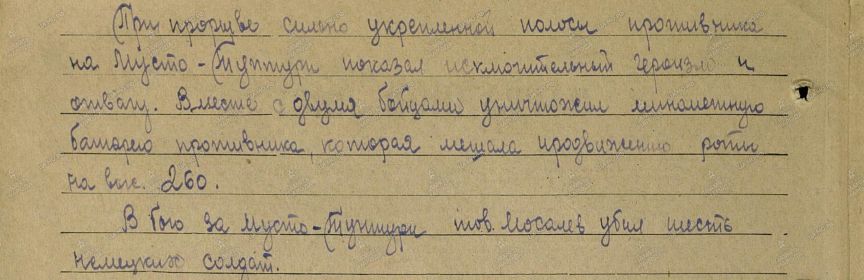 При прорыве сильно укрепленной полосы противника
на Мусто-Тунтури показал исключительный героизм и
отвагу. Вместе с двумя бойцами уничтожил минометную
батарею противника, которая мешала продвижению роты
на выс. 260.
В бою за Мусто-Тунтури тов. Мосалев убил шесть
немецких солдат.